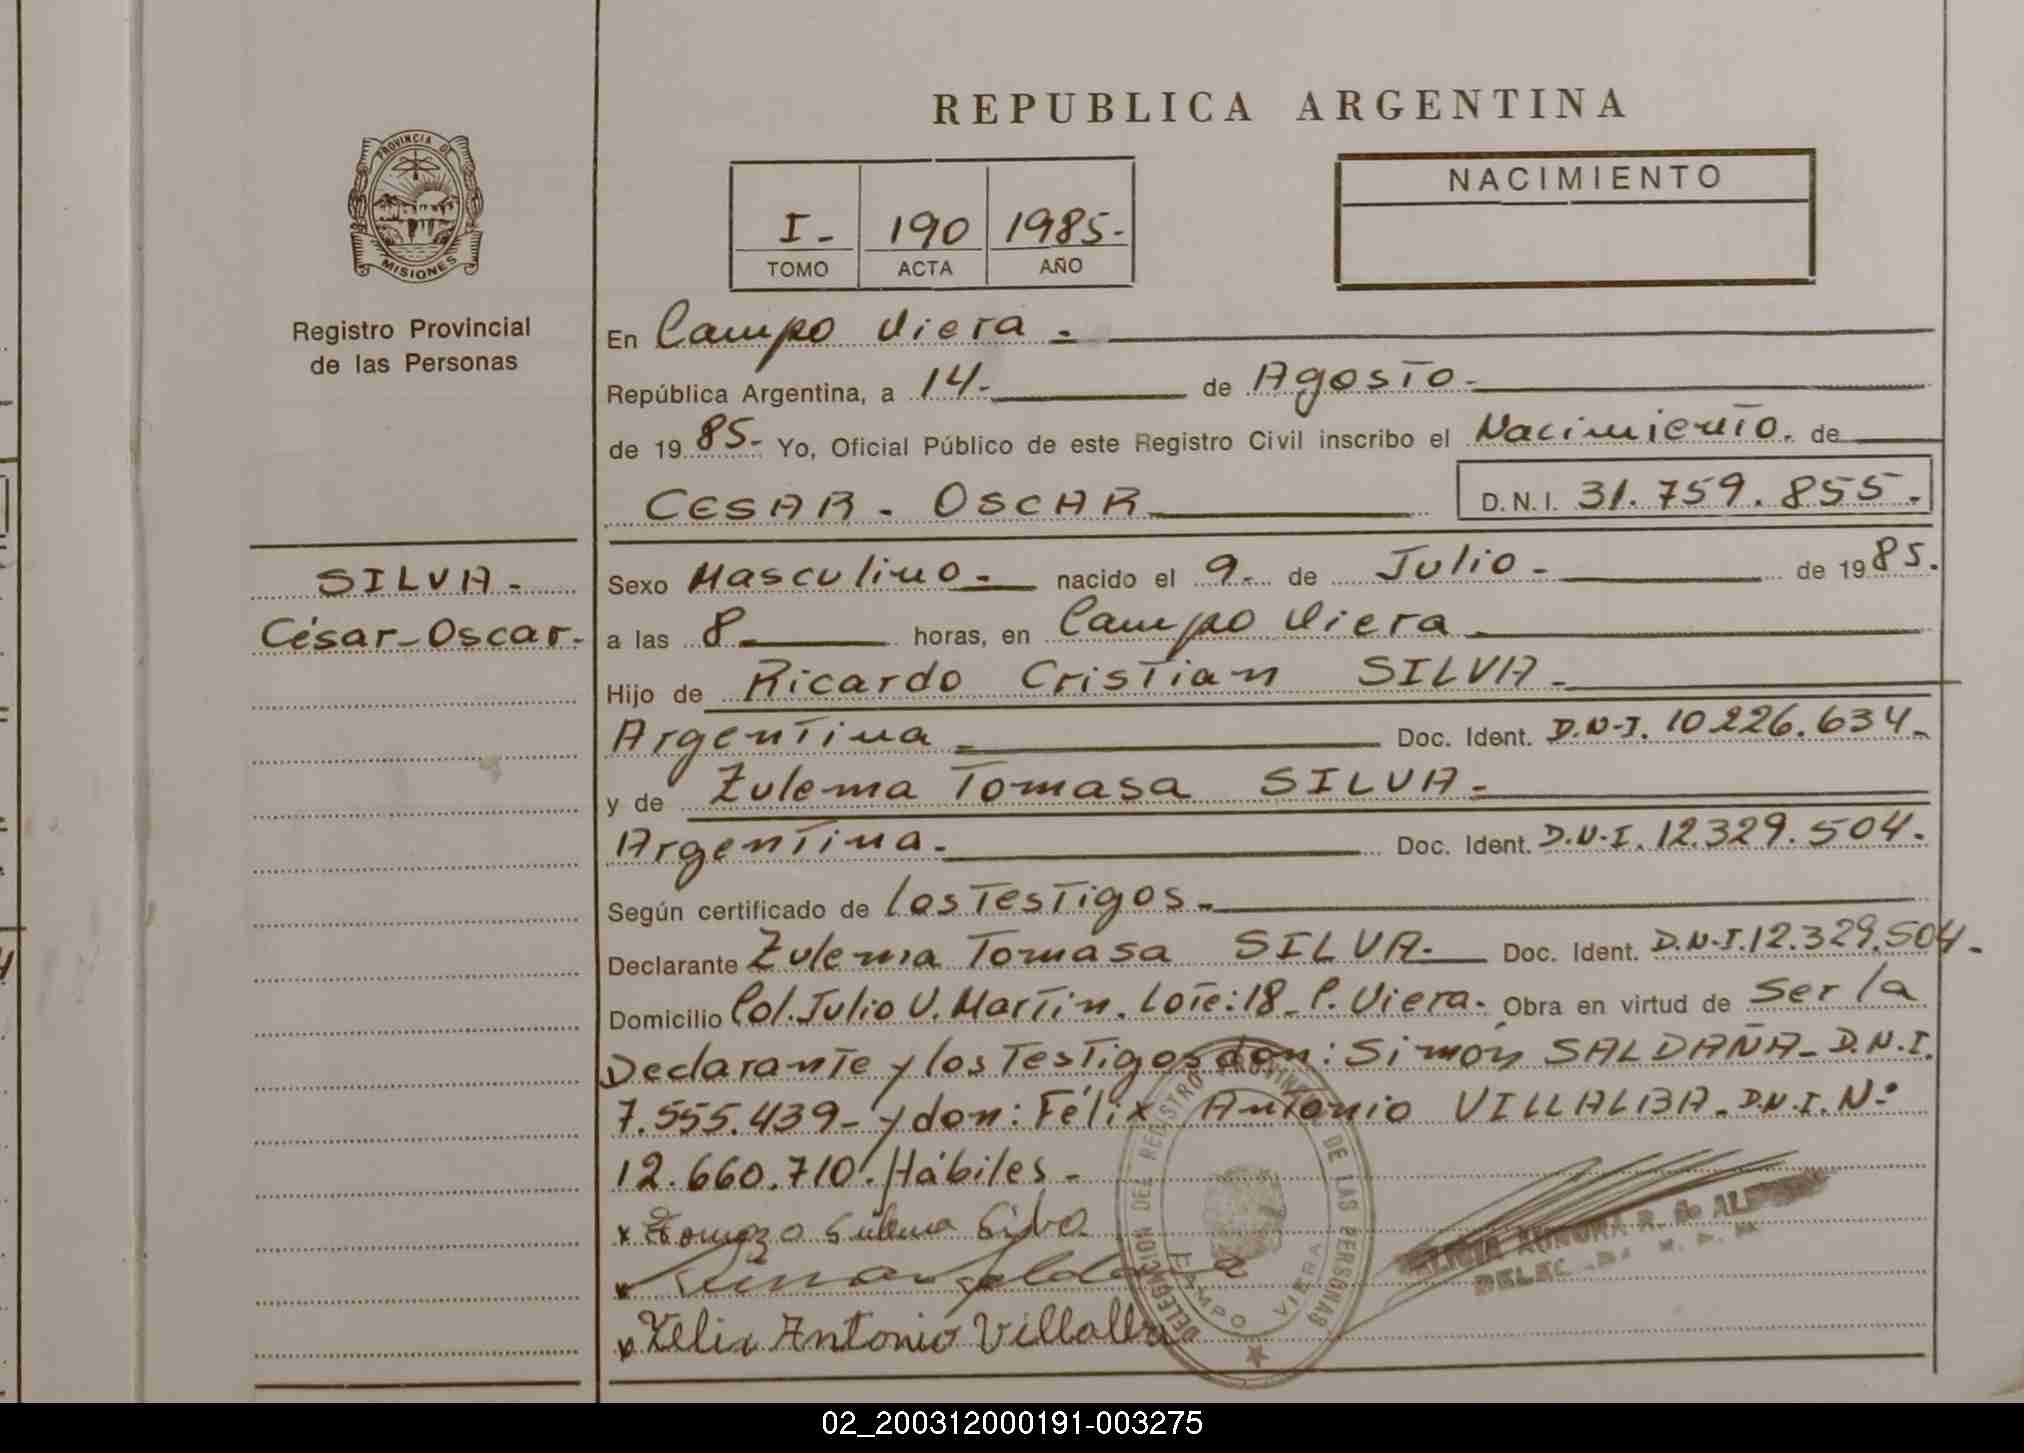 REPUBLICA ARGENTINA
PROVINCIA DE
MISIONES
Registro Provincial
de las Personas
I-
190
1985-
TOMO
ACTA
AÑO
NACIMIENTO
En Campo Viera.
República Argentina, a 14- de Agosto-
de 19 85- Yo, Oficial Público de este Registro Civil inscribo el Nacimiento. de
CESAR - OSCAR
D.N.I. 31.759.855.
SILVA-
César-Oscar-
Sexo Masculino- nacido el 9. de Julio- de 19 85.
a las 8. horas, en Campo Viera
Hijo de Ricardo Cristian SILVA-
Argentina- Doc. Ident. D.N-I. 10226.634-
y de Zulema Tomasa SILVA-
Argentina. Doc. Ident. D.N-I. 12.329.504.
Según certificado de los Testigos-
Declarante Zulema Tomasa SILVA- Doc. Ident. D.N-I.12.329.504-
Domicilio Col. Julio U. Martin. Lote:18- C. Viera. Obra en virtud de Ser la
Declarante y los Testigos don: Simón SALDAÑA- D.N.I.
7.555.439- y don: Félix Antonio VILLALBA- D.N.I. Nº
12.660.710. Hábiles-
Silva
Felix Antonio Villalba
DELEGACION DEL REGISTRO PROVINCIAL DE LAS PERSONAS
CAMPO VIERA
AURORA R. de
02_200312000191-003275